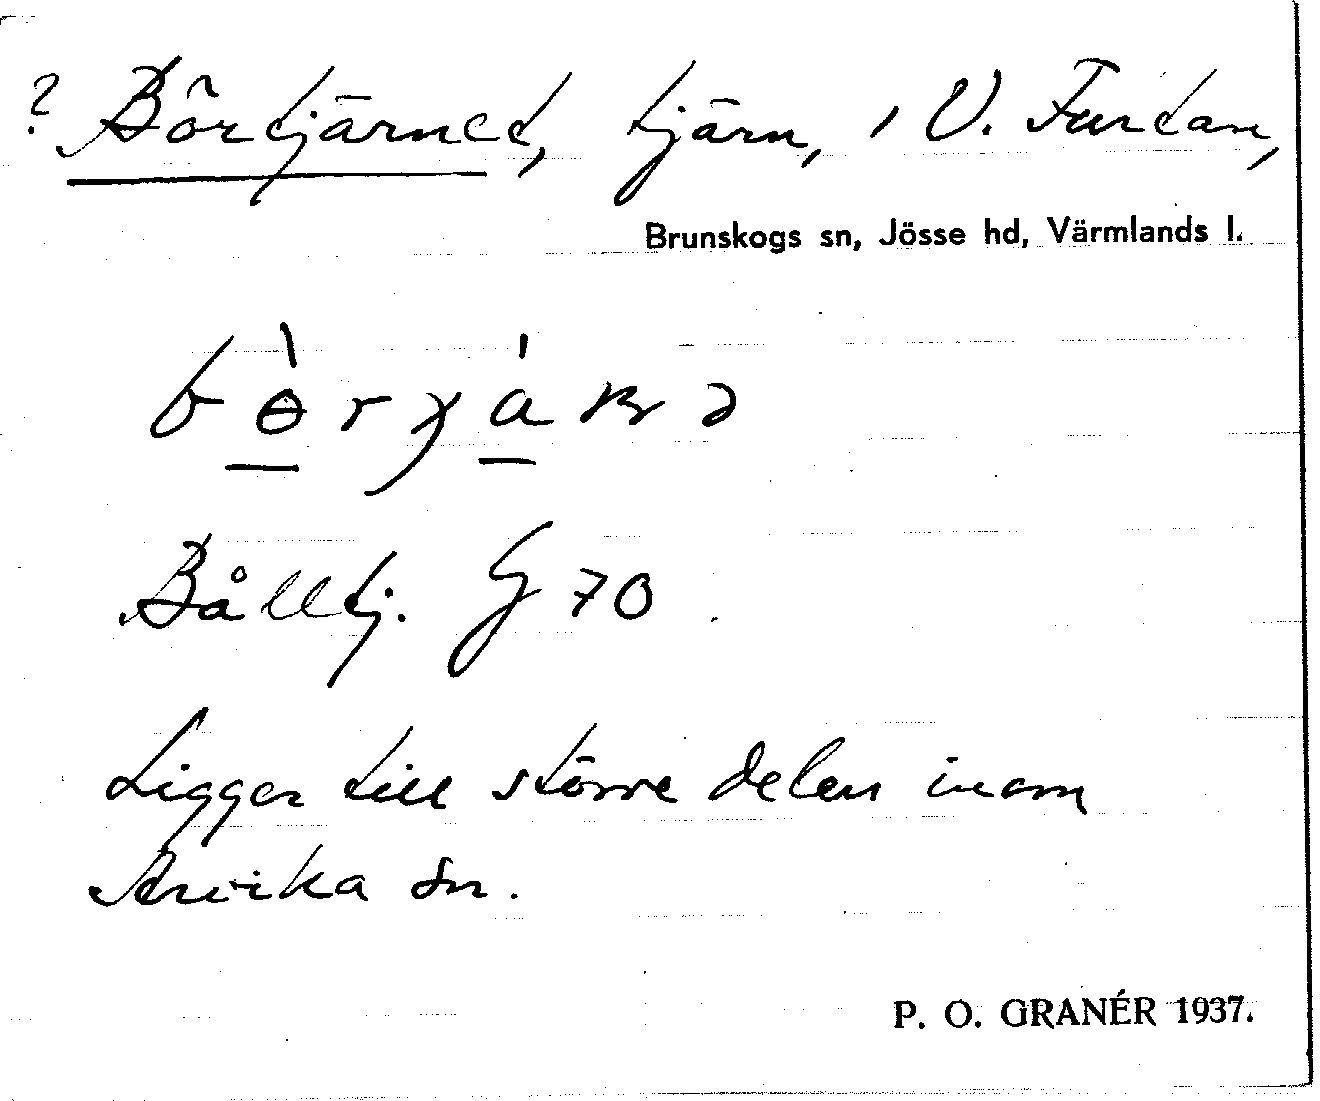 ? Börtjärnet, tjärn, i V. Furtan,
Brunskogs sn, Jösse hd, Värmlands l.
Bålltj. G 70
Ligger till större delen inom
Arvika sn.
P. O. GRANÉR 1937.